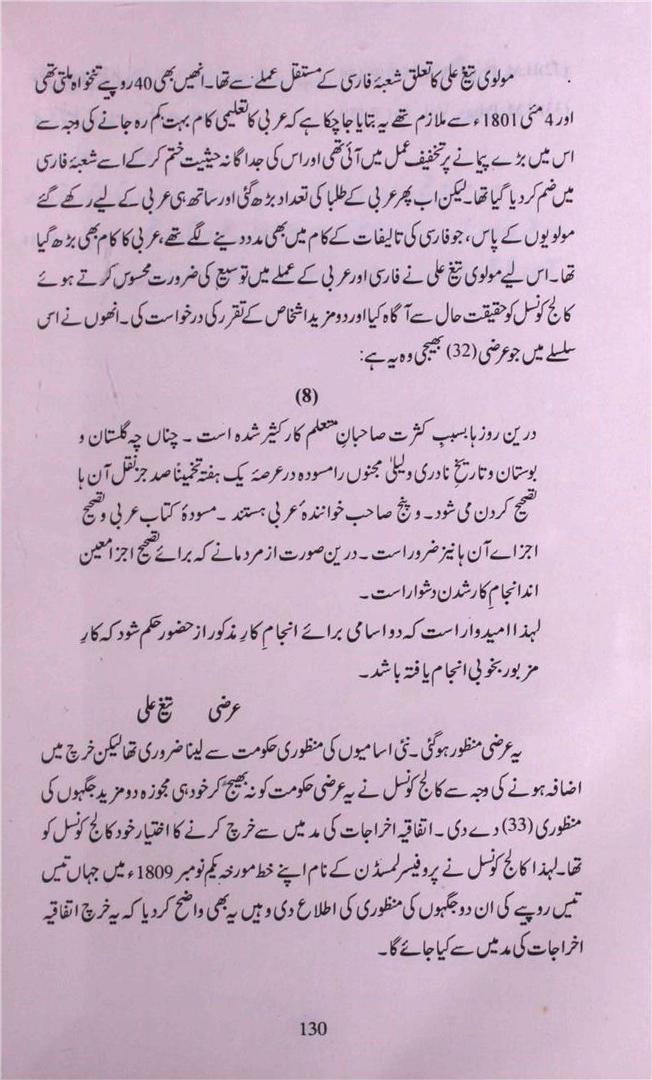 مولوی تیغ علی کا تعلق شعبۂ فارسی کے مستقل عملے سے تھا۔ انھیں بھی 40 روپے تنخواہ ملتی تھی
اور 4 مئی 1801ء سے ملازم تھے یہ بتایا جا چکا ہے کہ عربی کا تعلیمی کام بہت کم رہ جانے کی وجہ سے
اس میں بڑے پیمانے پر تخفیف عمل میں آئی تھی اور اس کی جداگانہ حیثیت ختم کر کے اسے شعبۂ فارسی
میں ضم کر دیا گیا تھا۔ لیکن اب پھر عربی کے طلبا کی تعداد بڑھ گئی اور ساتھ ہی عربی کے لیے رکھے گئے
مولویوں کے پاس، جو فارسی کی تالیفات کے کام میں بھی مدد دینے لگے تھے، عربی کا کام بھی بڑھ گیا
تھا۔ اس لیے مولوی تیغ علی نے فارسی اور عربی کے عملے میں توسیع کی ضرورت محسوس کرتے ہوئے
کالج کونسل کو حقیقت حال سے آگاہ کیا اور دو مزید اشخاص کے تقرر کی درخواست کی۔ انھوں نے اس
سلسلے میں جو عرضی (32) بھیجی وہ یہ ہے:
(8)
درین روزہا بسببِ کثرت صاحبانِ متعلم کار کثیر شدہ است ۔ چناں چہ گلستان و
بوستان و تاریخ نادری و لیلیٰ مجنوں را مسودہ در عرصۂ یک ہفتہ تخمیناً صد جز نقل آن ہا
تصحیح کردن می شود۔ و پنج صاحب خوانندۂ عربی ہستند ۔ مسودۂ کتاب عربی و تصحیح
اجزاے آن ہا نیز ضرور است ۔ درین صورت از مردمانے کہ برائے تصحیح اجزا معین
اند انجامِ کار شدن دشوار است ۔
لہٰذا امیدوار است کہ دو اسامی برائے انجامِ کارِ مذکور از حضور حکم شود کہ کارِ
مزبور بخوبی انجام یافتہ باشد۔
عرضی تیغ علی
یہ عرضی منظور ہو گئی۔ نئی اسامیوں کی منظوری حکومت سے لینا ضروری تھا لیکن خرچ میں
اضافہ ہونے کی وجہ سے کالج کونسل نے یہ عرضی حکومت کو نہ بھیج کر خود ہی مجوزہ دو مزید جگہوں کی
منظوری (33) دے دی۔ اتفاقیہ اخراجات کی مد میں سے خرچ کرنے کا اختیار خود کالج کونسل کو
تھا۔ لہٰذا کالج کونسل نے پروفیسر لمسڈن کے نام اپنے خط مورخہ یکم نومبر 1809ء میں جہاں تیس
تیس روپے کی ان دو جگہوں کی منظوری کی اطلاع دی وہیں یہ بھی واضح کر دیا کہ یہ خرچ اتفاقیہ
اخراجات کی مد میں سے کیا جائے گا۔
130